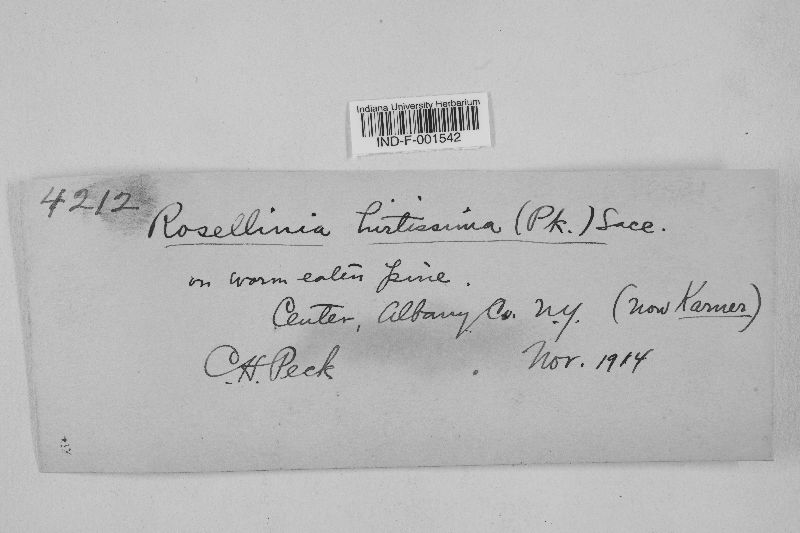 Indiana University Herbarium
IND-F-001542
4212
Rosellinia hirtissima (Pk.) Sacc.
on worm eaten pine.
Center, Albany Co. N.Y. (now Karner)
C.H. Peck Nov. 1914